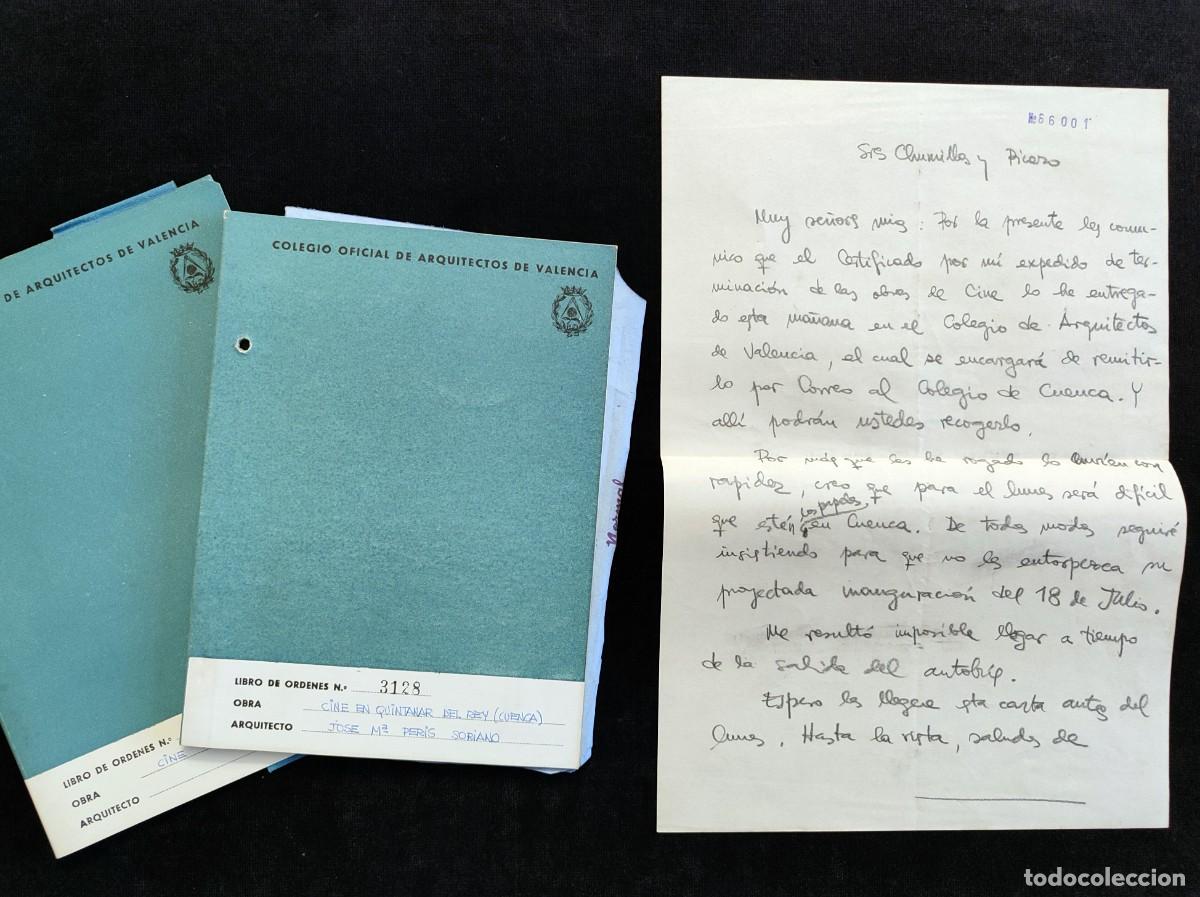 DE ARQUITECTOS DE VALENCIA
LIBRO DE ORDENES N.º
OBRA CINE
ARQUITECTO
COLEGIO OFICIAL DE ARQUITECTOS DE VALENCIA
Normal
LIBRO DE ORDENES N.º 3128
OBRA CINE EN QUINTANAR DEL REY (CUENCA)
ARQUITECTO JOSE Mª PERIS SORIANO
Nº 66001
Srs Chumillas y Picazo
Muy señores mios: Por la presente les comu-
nico que el Certificado por mí expedido de ter-
minación de las obras de Cine lo he entrega-
do esta mañana en el Colegio de Arquitectos
de Valencia, el cual se encargará de remitir-
lo por Correo al Colegio de Cuenca. Y
allí podrán ustedes recogerlo.
Por más que les he rogado lo envíen con
rapidez, creo que para el lunes será difícil
que estén los papeles en Cuenca. De todos modos seguiré
insistiendo para que no les entorpezca su
proyectada inauguración del 18 de Julio.
Me resultó imposible llegar a tiempo
de la salida del autobús.
Espero les llegue esta carta antes del
lunes. Hasta la vista, saludos de
todocoleccion